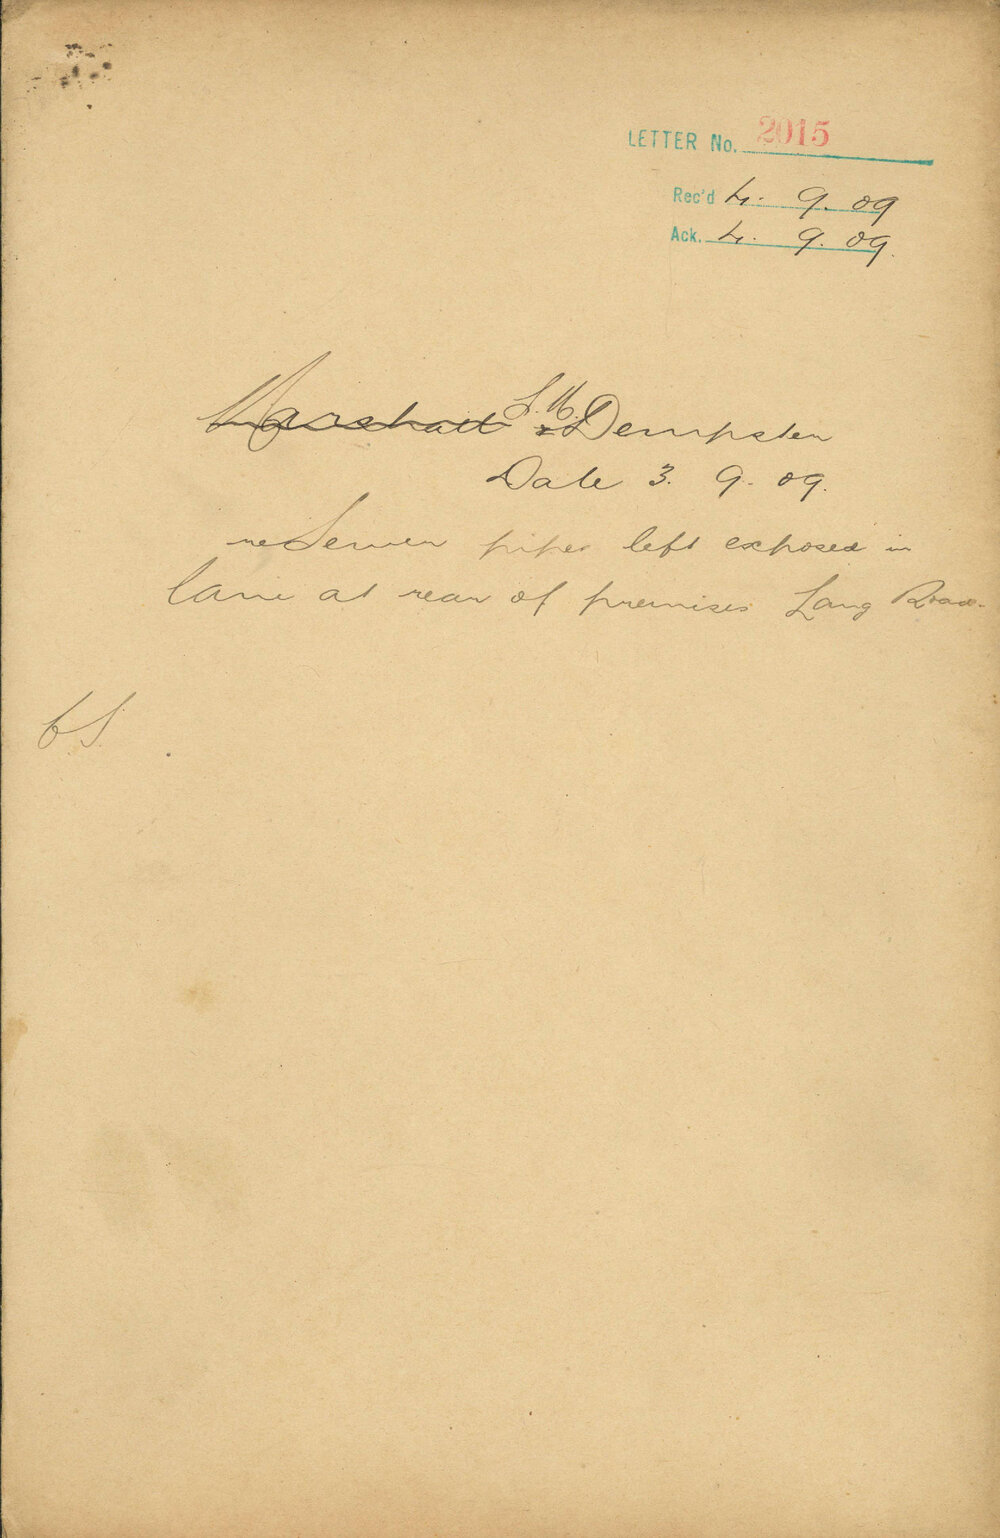 LETTER No. 2015
Rec'd 4. 9. 09
Ack. 4. 9. 09.
Marshall & S. H. Dempster
Date 3. 9. 09.
re Sewer pipes left exposed in
lane at rear of premises Lang Road.